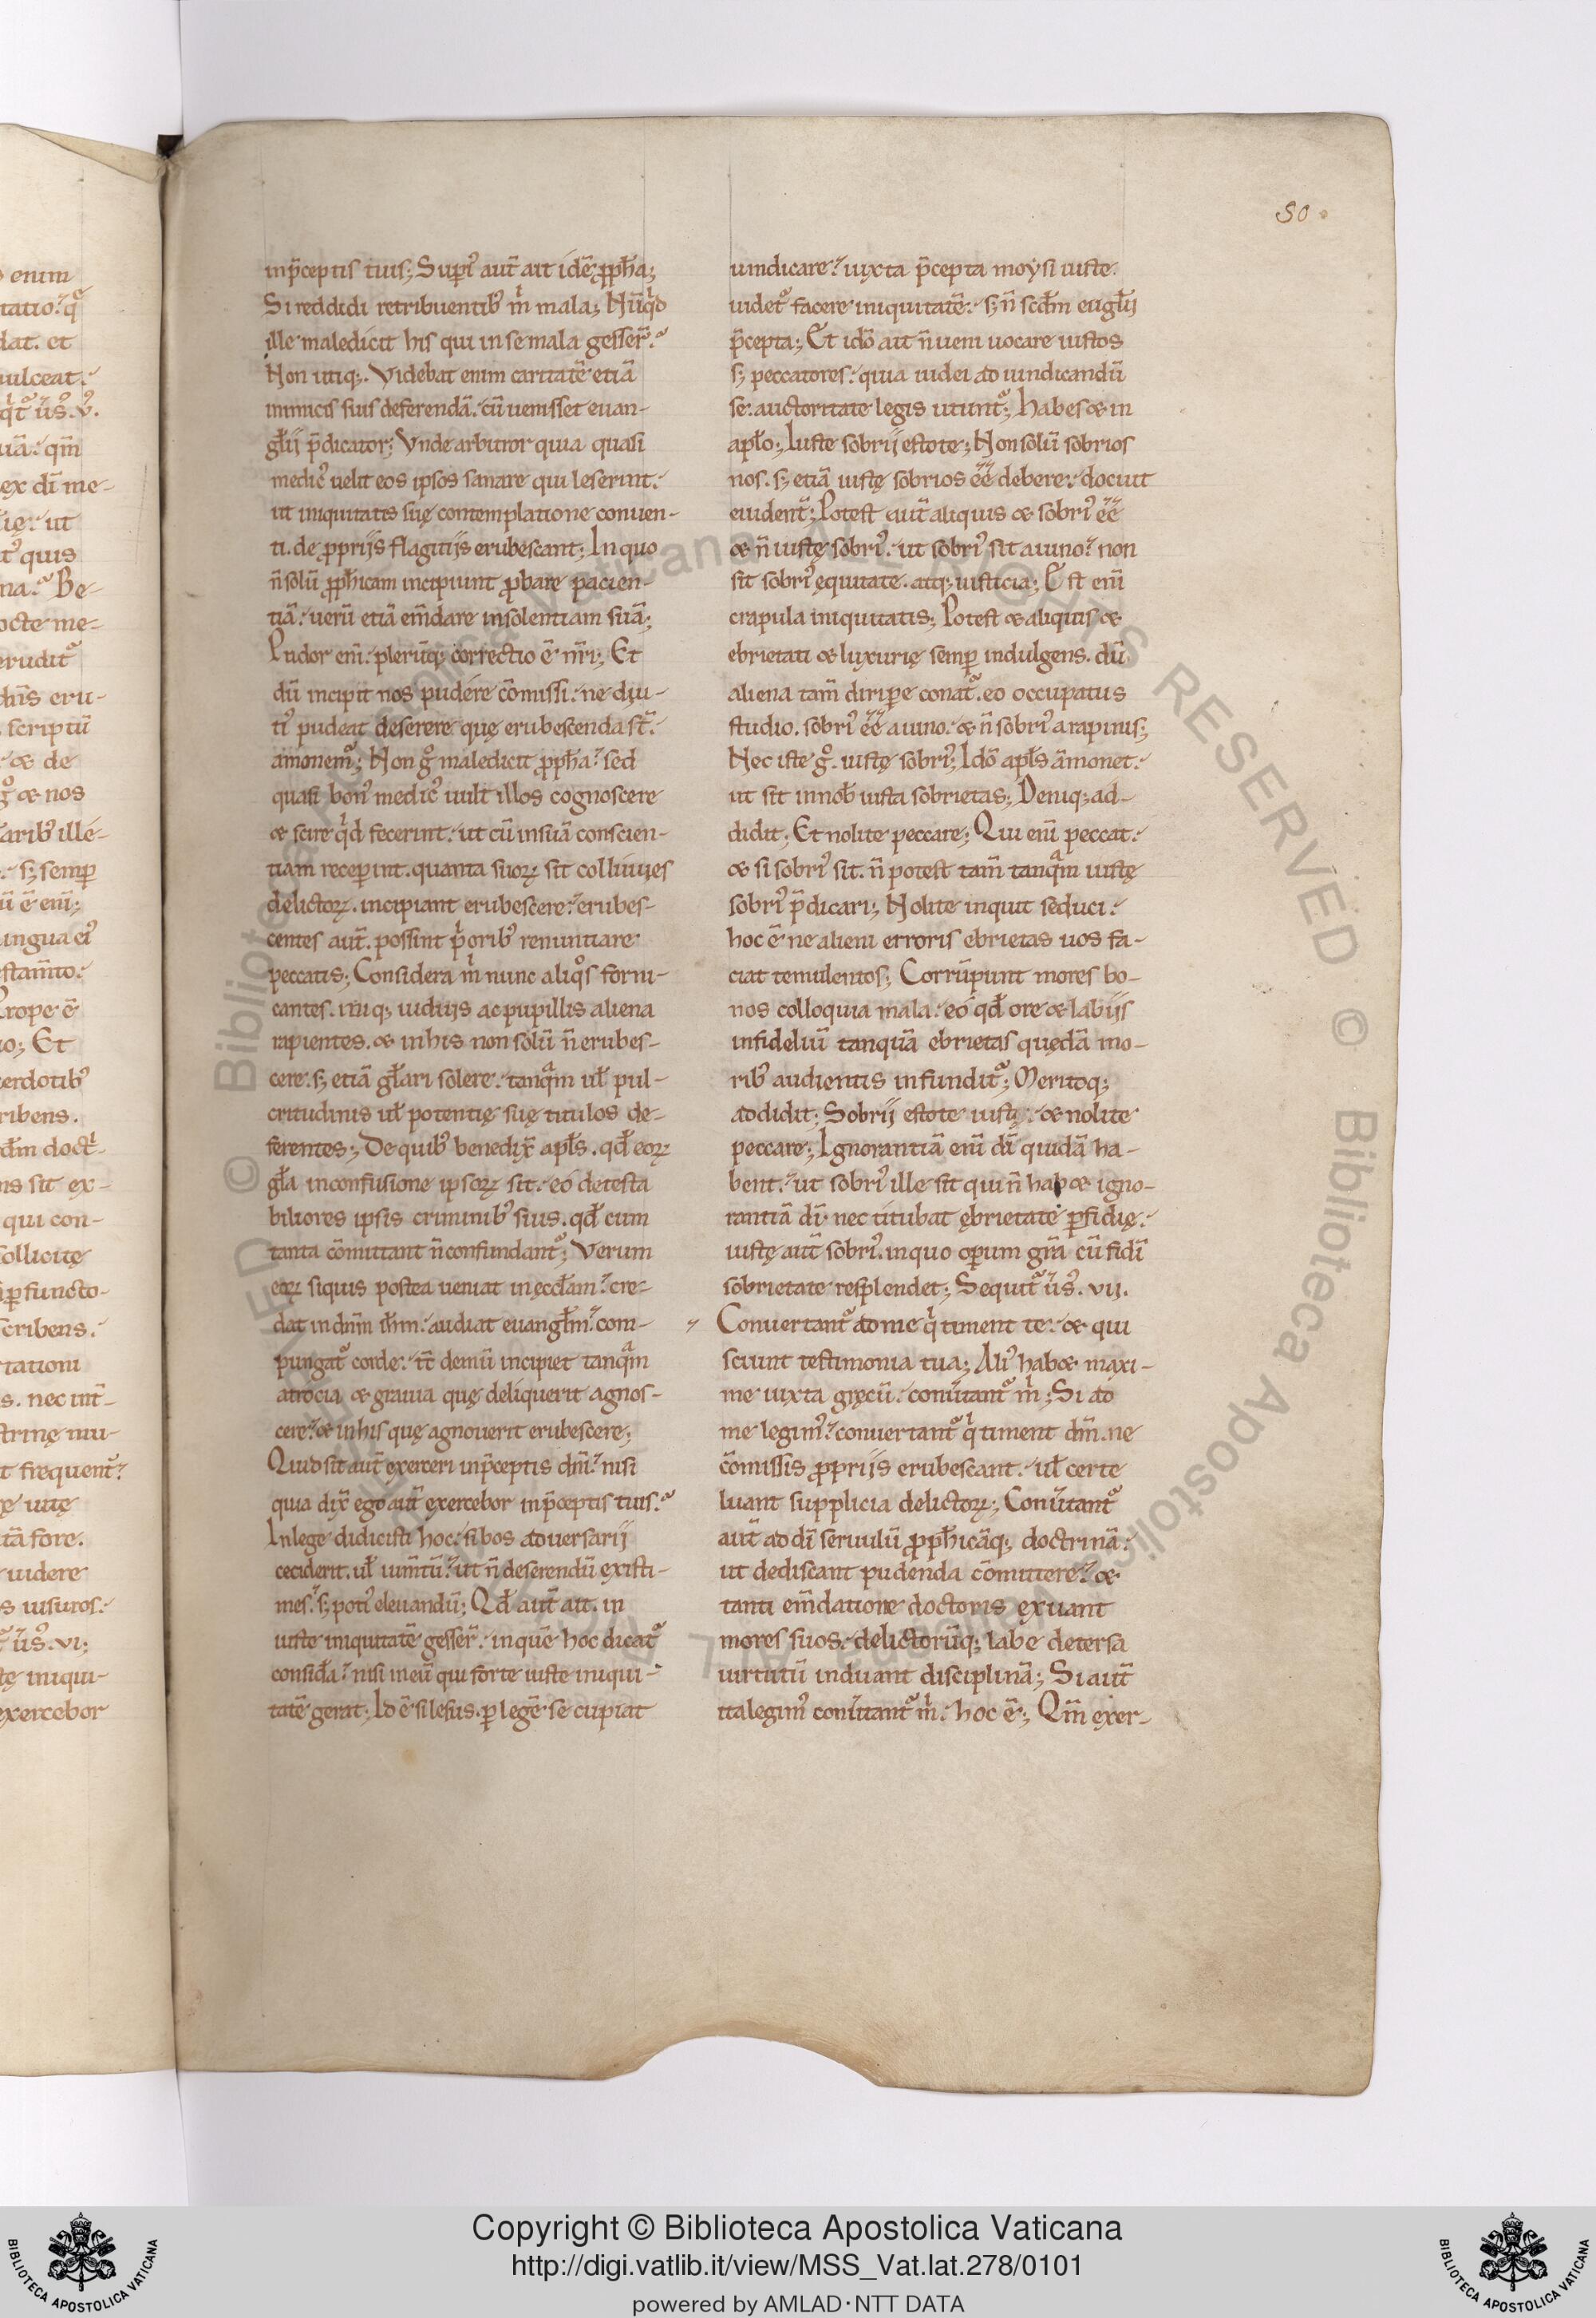 50
inp̄ceptis tuis; Suꝑi᷒ aut̄ ait idē ꝓph̄a;
Si reddidi retribuentib᷒ m̍ mala; Nūq̍d
ille maledicit his qui in se mala gesser̄.
Non utiq;. Videbat enim caritatē etiā
inimicis suis deferendā. cū uenisset euan-
gl̄ij p̄dicator; Vnde arbitror quia quasi
medic᷒ uelit eos ipsos sanare qui leserint.
ut iniquitatis suę contemplatione conuen-
ti. de ꝓprijs flagitijs erubescant; In quo
n̄ solū ꝓph̄icam incipiunt ꝓbare pacien-
tiā. uerū etiā em̄dare insolentiam suā;
Pudor eni᷒. plerūq; correctio ē nr̄i; Et
dū incipit nos pudére cōmissi. ne diu-
ti᷒ pudeat deserere quę erubescenda st̄.
āmonem᷒; Non g̊ maledicit ꝓph̄a. sed
quasi bon᷒ medic᷒ uult illos cognoscere
& scire q̍d fecerint. ut cū in suā conscien-
tiam receꝑint. quanta suoꝝ sit colluuies
delictoꝝ. incipiant erubescere. erubes-
centes aut̄. possint p̍orib᷒ renuntiare
peccatis; Considera m̍ nunc aliq̊s forni-
cantes. iniq; uiduijs ac pupillis aliena
rapientes. & in his non solū n̄ erubes-
cere. s; etiā gl̄ari solere. tanq̄m ul̄ pul-
critudinis ul̄ potentię suę titulos de-
ferentes; De quib᷒ bene dix̄ apl̄s. qd̄ eoꝝ
gl̄a in confusione ipsoꝝ sit. eó detesta
biliores ipsis criminib᷒ suis. qd̄ cum
tanta cōmittant n̄ confundant᷒; Verum
eoꝝ siquis postea ueniat in ęccl̄am. cre-
dat in dn̄m ih̄m. audiat euangl̄m. com-
pungat᷒ corde. tc̄ demū incipiet tanq̄m
atrocia & grauia quę deliquerit agnos-
cere. & in his quę agnouerit erubescere;
Quid sit aut̄ exerceri inp̄ceptis dn̄i. nisi
quia dix̄ ego aut̄ exercebor inp̄ceptis tuis.
In lege didicisti hoc. si bos aduersarij
ceciderit. ul̄ iumt̄ū. ut n̄ deserendū existi-
mes. s; poti᷒ eleuandū; Qd̄ aut̄ ait. in
iuste iniquitatē gesser̄. in quē hoc dicat᷒
consid̄a. nisi in eū qui forte iuste iniqui-
tatē gerat; Id ē si lesus. ꝑ legē se cupiat
uindicare. iuxta p̄cepta moẏsi iuste.
uidet᷒ facere iniquitatē. s; n̄ scd̄m eugl̄ij
p̄cepta; Et idō ait n̄ ueni uocare iustos
s; peccatores. quia iudei ad uindicandū
se. auctoritate legis utunt᷒; Habes & in
apl̄o; Iuste sobrij estote; Non solū sobrios
nos. s; etiā iustę sobrios ēē debere. docuit
euident̄; Potest aut̄ aliquis & sobri᷒ ēē
& n̄ iustę sobri᷒. ut sobri᷒ sit a uino. non
sit sobri᷒ ęquitate. atq; iusticia; Est eni᷒
crapula iniquitatis; Potest & aliquis &
ebrietati & luxurię semꝑ indulgens. dū
aliena tam̄ diriꝑe conat᷒. eo occupatus
studio. sobri᷒ ēē a uino. & n̄ sobri᷒ a rapinis;
Nec iste g̊. iustę sobri᷒; Idō apl̄s āmonet.
ut sit in nob̄ iusta sobrietas; Deniq; ad-
didit; Et nolite peccare; Qui eni᷒ peccat.
& si sobri᷒ sit. n̄ potest tam̄ tanq̄m iustę
sobri᷒ p̄dicari; Nolite inquit seduci.
hoc ē ne alieni erroris ebrietas uos fa-
ciat temulentos; Corrūpunt mores bo-
nos colloquia mala. eó qd̄ ore & labijs
infideliū tanquā ebrietas quędā mo-
rib᷒ audientis infundit᷒; Meritoq;
addidit; Sobrij estote iustę. & nolite
peccare; Ignorantiā eni᷒ di᷒ quidā ha-
bent. ut sobri᷒ ille sit qui n̄ hab& igno-
rantiā di᷒. nec titubat ębrietate ꝑfidię.
iustę aut̄ sobri᷒. in quo oꝑum gr̄a cū fidi᷒
sobrietate resplendet; Sequit᷒ u̅s᷒. vij.
Conuertant᷒ ad me q̍ timent te. & qui
sciunt testimonia tua; Ali᷒ hab& maxi-
me iuxta gręcū. conūtant᷒ m̍; Si ad
me legim᷒. conuertant᷒ q̍ timent dn̄m. ne
cōmissis ꝓprijs erubescant. ul̄ certe
luant supplicia delictoꝝ; Conūtant᷒
aut̄ ad di᷒ seruulū ꝓph̄icāq; doctrinā.
ut dediscant pudenda cōmittere. &
tanti em̄datione doctoris exuant
mores suos. delictorūq; labe detersa
uirtutū induant disciplinā; Si aut̄
ita legim᷒ conūtant᷒ m̍. hoc ē; Qm̄ exer-
Copyright © Biblioteca Apostolica Vaticana
http://digi.vatlib.it/view/MSS_Vat.lat.278/0101
powered by AMLAD·NTT DATA
BIBLIOTECA APOSTOLICA VATICANA
BIBLIOTECA APOSTOLICA VATICANA